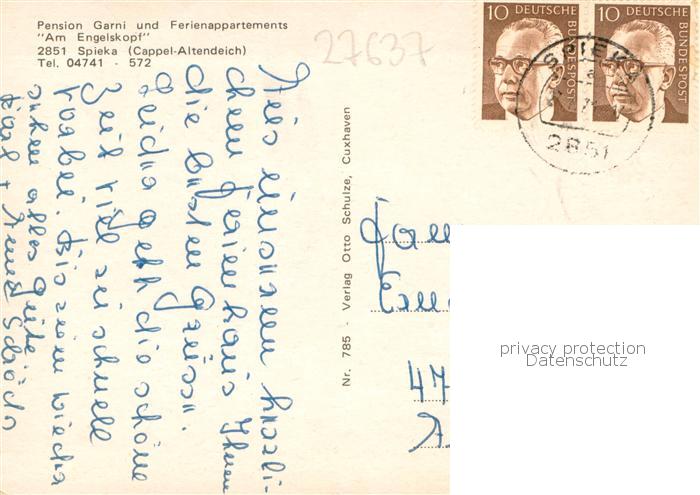 Pension Garni und Ferienappartements
"Am Engelskopf"
2851 Spieka (Cappel-Altendeich)
Tel. 04741 - 572
27637
10 DEUTSCHE BUNDESPOST
10 DEUTSCHE BUNDESPOST
SPIEKA
2851
Aus unserem herrli-
chem Ferienhaus Ihnen
die besten Grüsse.
Leider geht die schöne
Zeit viel zu schnell
vorbei. Bis zum wieder
sehen alles Gute
Nr. 785 - Verlag Otto Schulze, Cuxhaven
Fam
47
privacy protection
Datenschutz